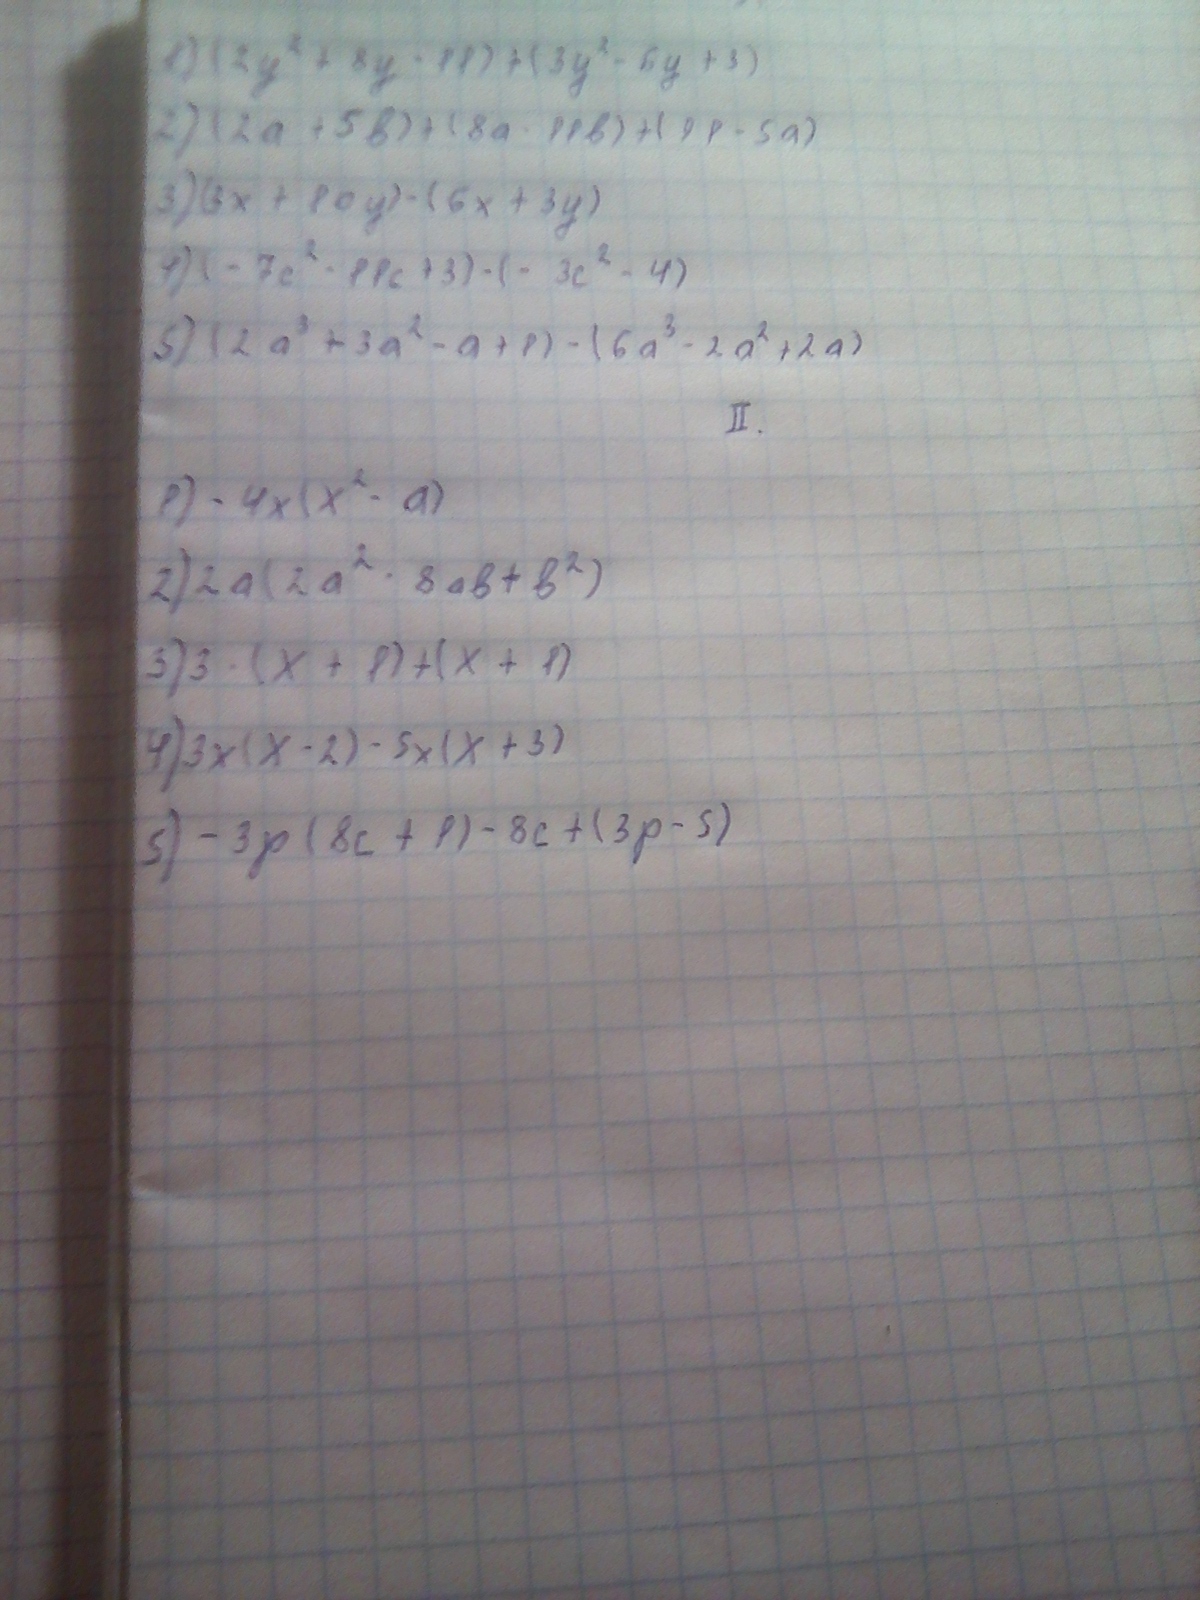 1) (2y² + 8y - 11) + (3y² - 6y + 3)
2) (2a + 5b) + (8a - 11b) + (11 - 5a)
3) (3x + 10y) - (6x + 3y)
4) (-7c² - 11c + 3) - (-3c² - 4)
5) (2a³ + 3a² - a + 1) - (6a³ - 2a² + 2a)
II.
1) - 4x(x² - a)
2) 2a(2a² - 8ab + b²)
3) 3 · (x + 1) + (x + 1)
4) 3x(x - 2) - 5x(x + 3)
5) - 3p(8c + 1) - 8c + (3p - 5)